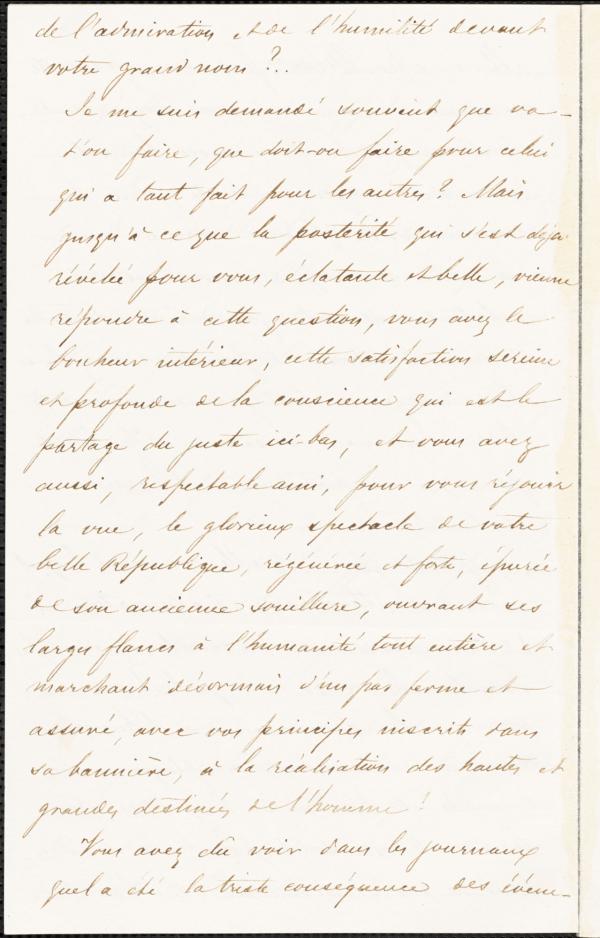 de l'admiration et de l'humilité devant
votre grand nom ?..
Je me suis demandé souvent que va-
t'on faire, que doit-on faire pour celui
qui a tant fait pour les autres ? Mais
jusqu'à ce que la postérité qui s'est déja
révélée pour vous, éclatante et belle, vienne
répondre à cette question, vous avez le
bonheur intérieur, cette satisfaction sereine
et profonde de la conscience qui est le
partage du juste ici-bas, et vous avez
aussi, respectable ami, pour vous réjouir
la vue, le glorieux spectacle de votre
belle République, régénérée et forte, épurée
de son ancienne souillure, ouvrant ses
larges flancs à l'humanité tout entière et
marchant désormais d'un pas ferme et
assuré, avec vos principes inscrits dans
sa bannière, à la réalisation des hautes et
grandes destinées de l'homme !
Vous avez dû voir dans les journaux
quel a été la triste conséquence des événe-